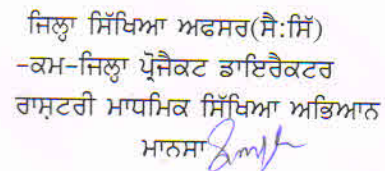 ਜਿਲ੍ਹਾ ਸਿੱਖਿਆ ਅਫਸਰ(ਸੈ:ਸਿੱ)
-ਕਮ-ਜਿਲ੍ਹਾ ਪ੍ਰੋਜੈਕਟ ਡਾਇਰੈਕਟਰ
ਰਾਸ਼ਟਰੀ ਮਾਧਮਿਕ ਸਿੱਖਿਆ ਅਭਿਆਨ
ਮਾਨਸਾ